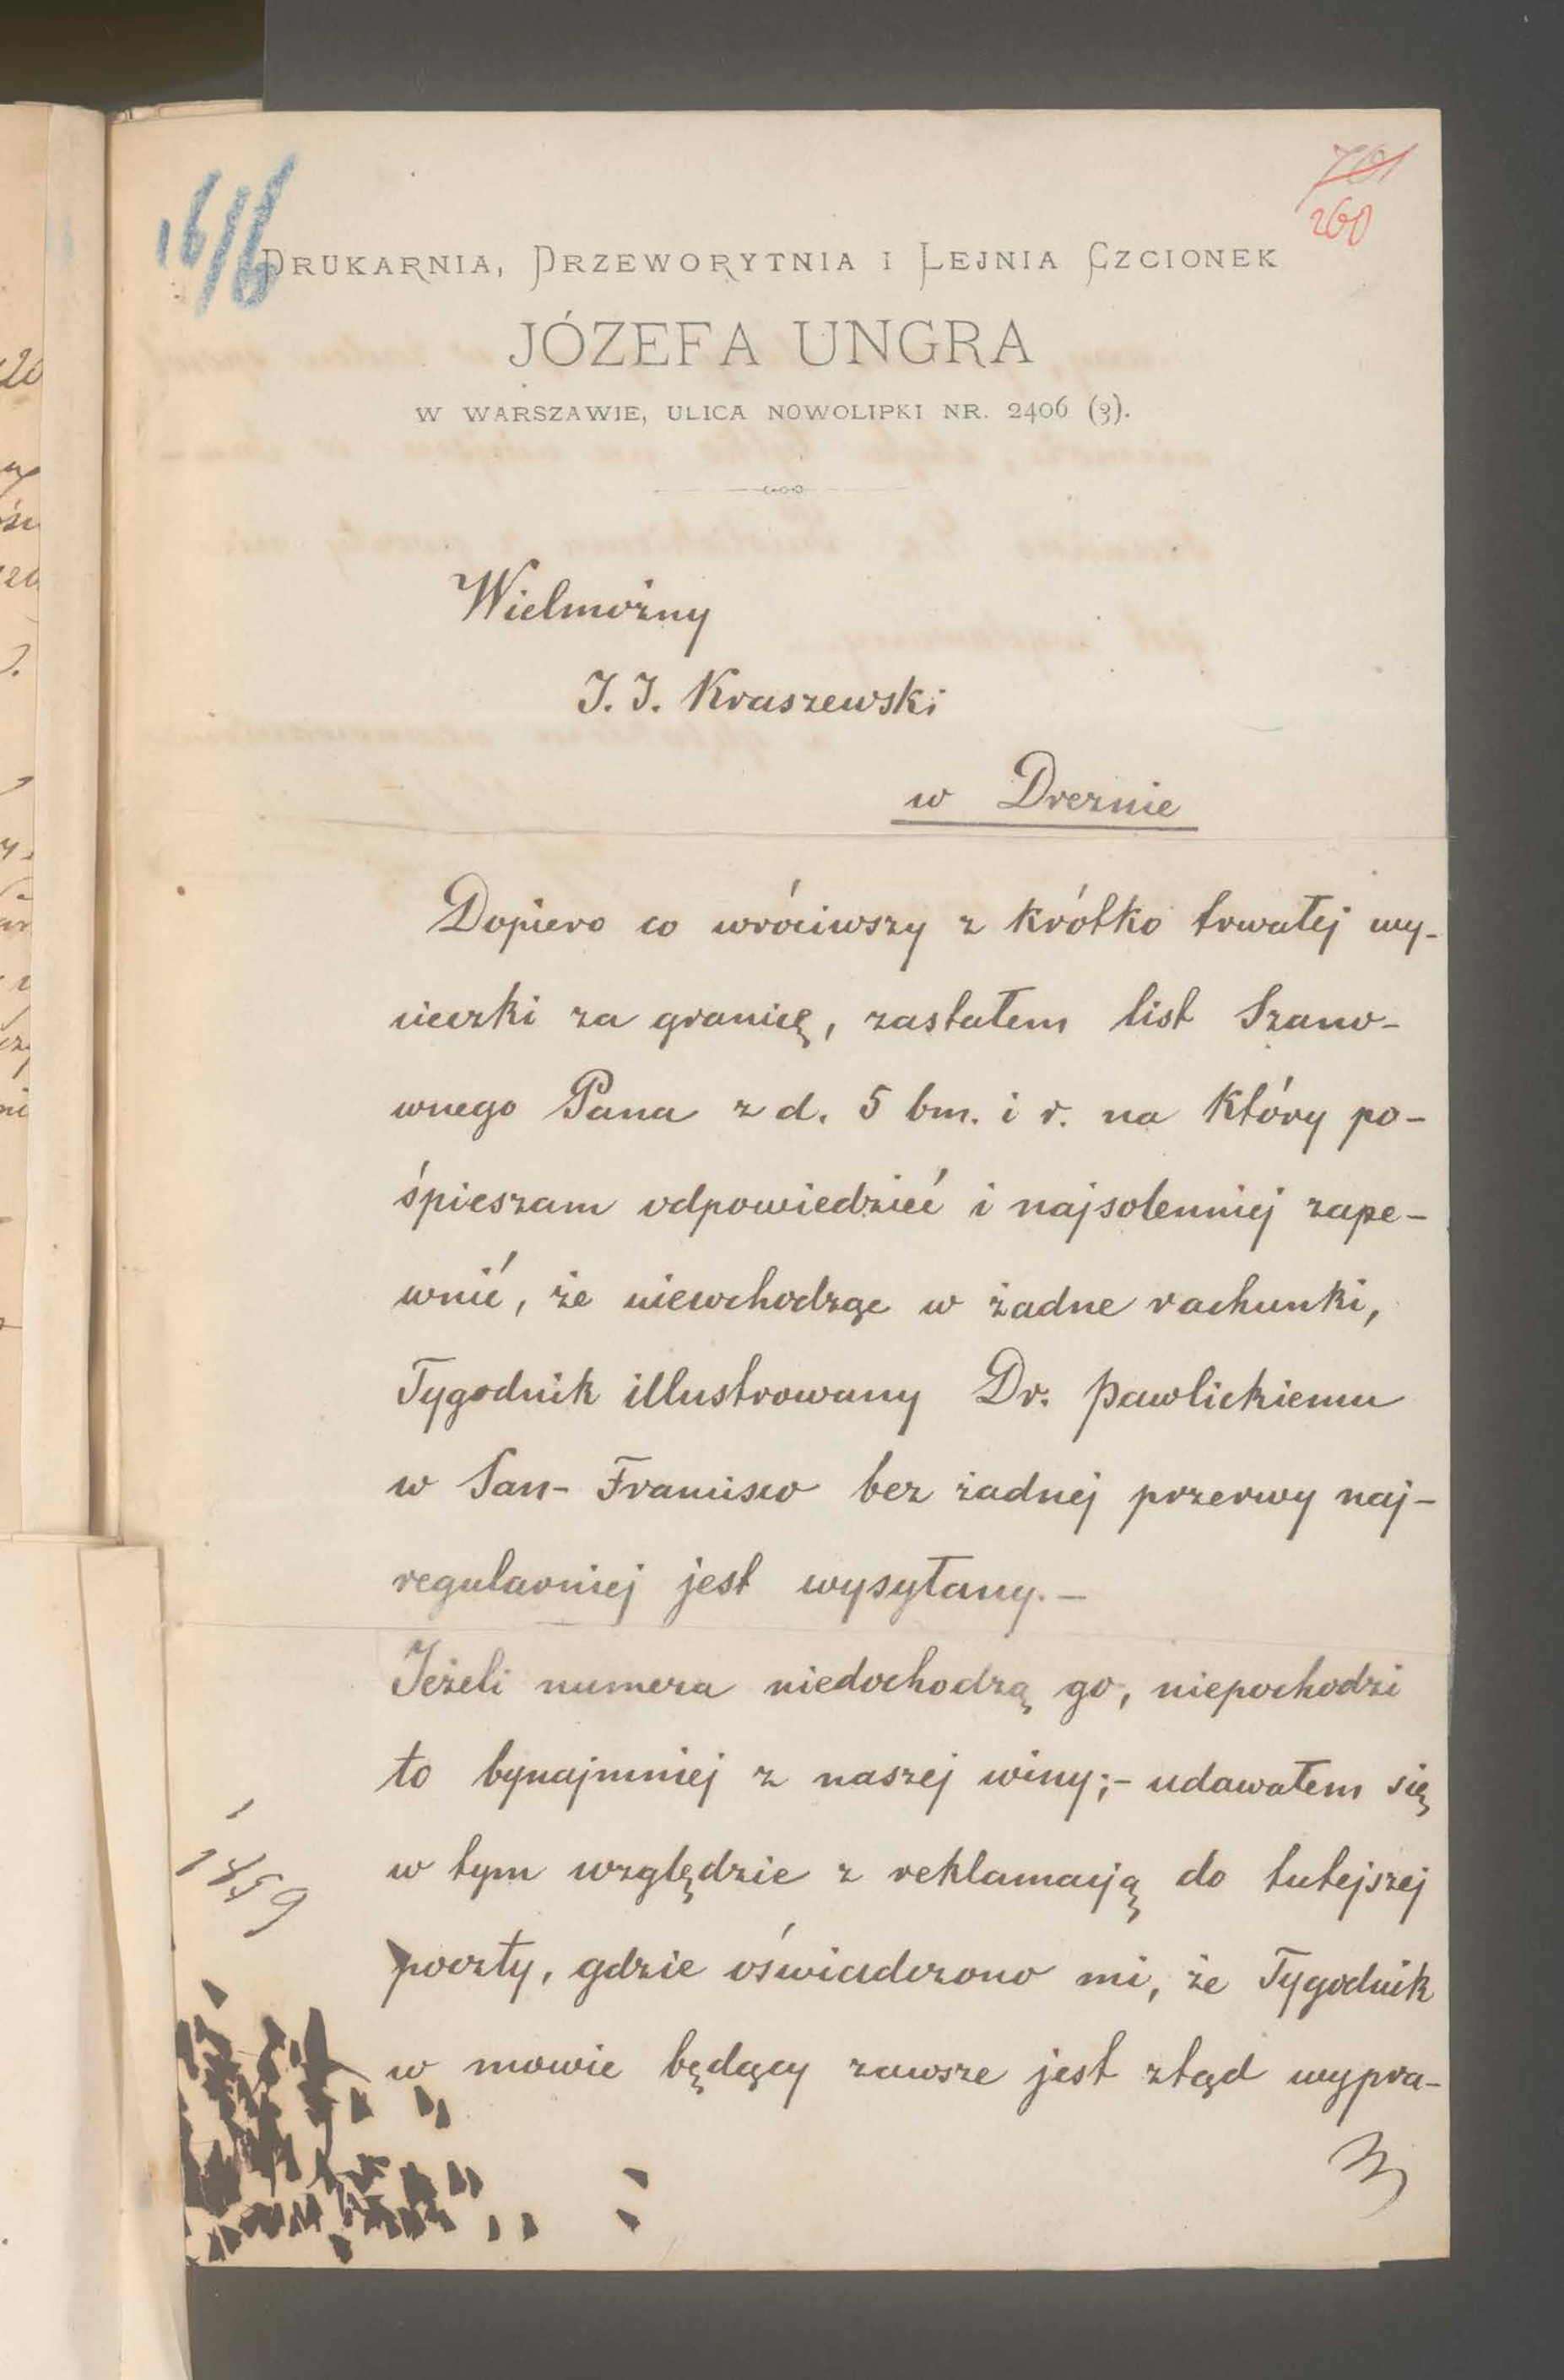 16/6
701
260
DRUKARNIA, PRZEWORYTNIA I LEJNIA CZCIONEK
JÓZEFA UNGRA
W WARSZAWIE, ULICA NOWOLIPKI NR. 2406 (3).
Wielmożny
J. J. Kraszewski
w Dreznie
Dopiero co wróciwszy z krótko trwałej wy-
cieczki za granicę, zastałem list Szano-
wnego Pana z d. 5 bm. i r. na który po-
śpieszam odpowiedzieć i najsolenniej zape-
wnić, że niewchodząc w żadne rachunki,
Tygodnik illustrowany Dr. Pawlickiemu
w San-Francisco bez żadnej przerwy naj-
regularniej jest wysyłany.—
Jeżeli numera niedochodzą go, niepochodzi
to bynajmniej z naszej winy;- udawałem się
w tym względzie z reklamacją do tutejszej
poczty, gdzie oświadczono mi, że Tygodnik
w mowie będący zawsze jest ztąd wypra-
1459